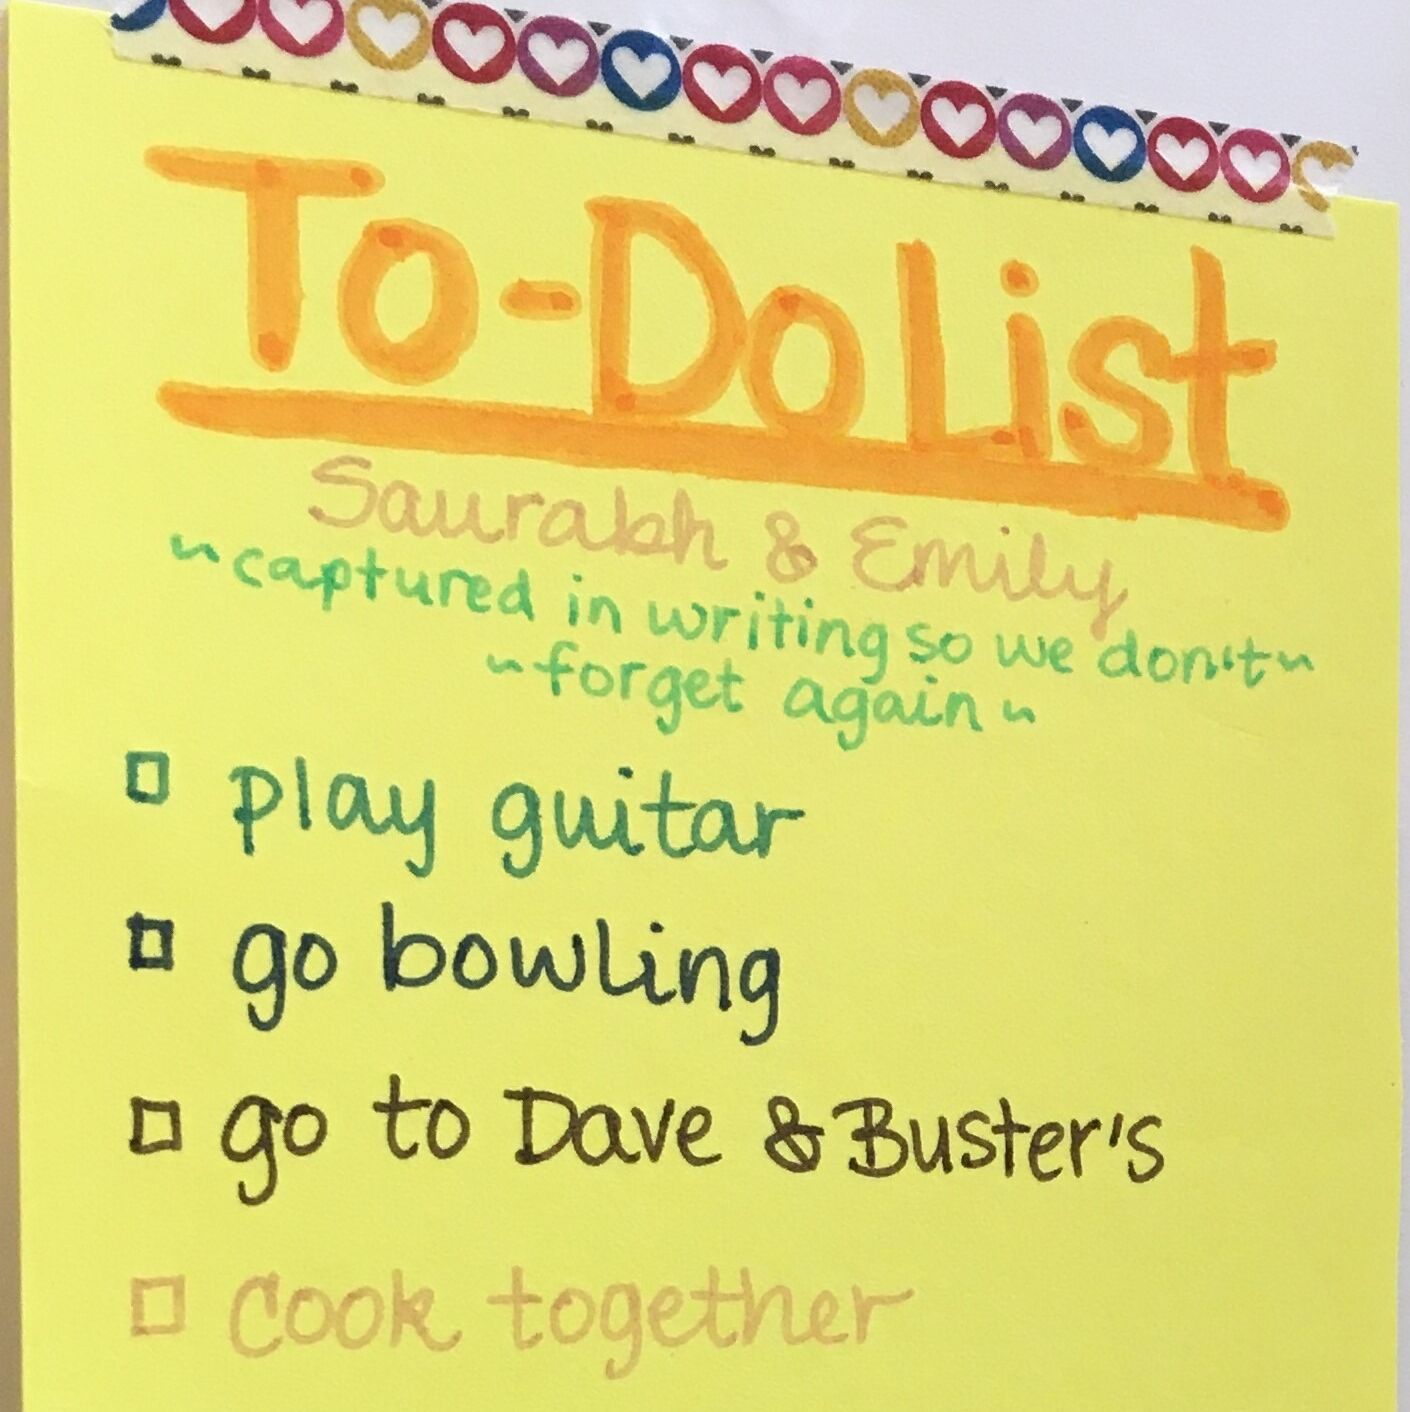 To-Do List
Saurabh & Emily
~captured in writing so we don't~
~forget again~
play guitar
go bowling
go to Dave & Buster's
cook together